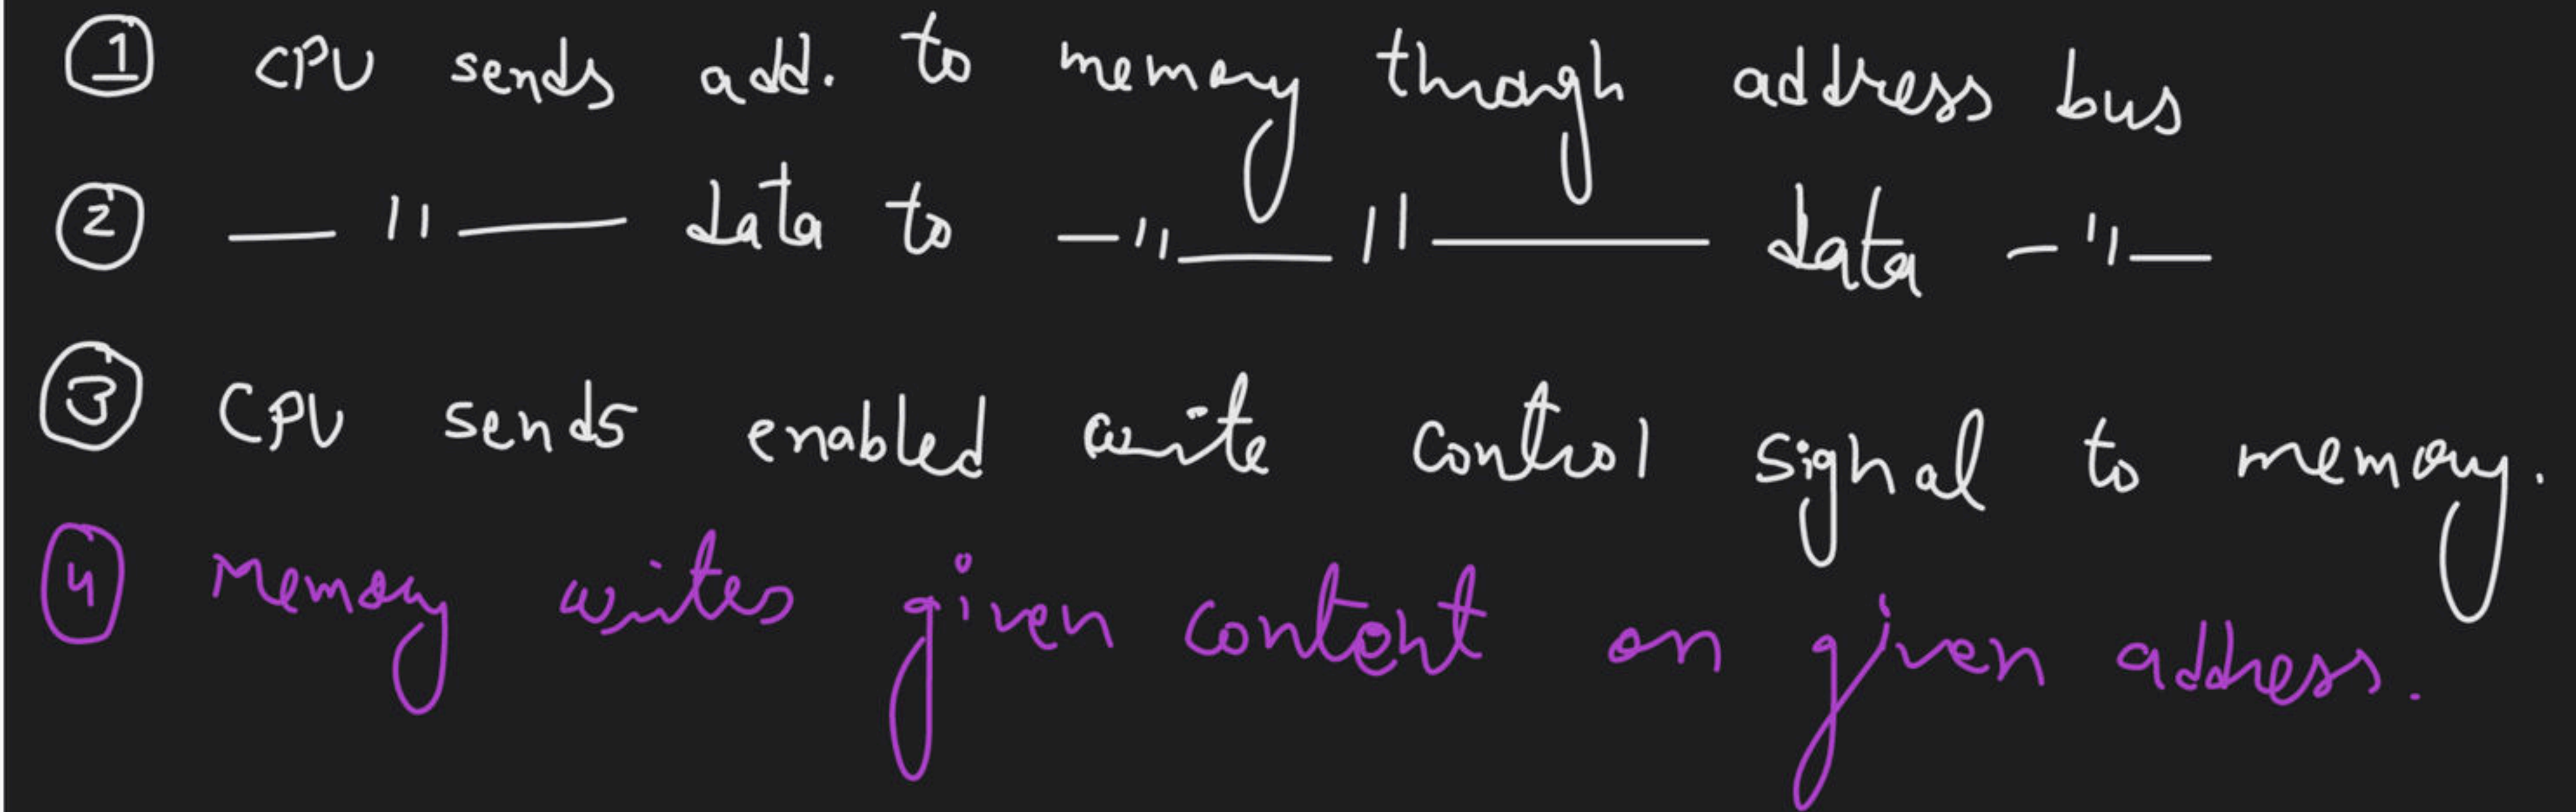 ① CPU sends add. to memory through address bus
② — " — data to — " — " — data — " —
③ CPU sends enabled write control signal to memory.
④ Memory writes given content on given address.